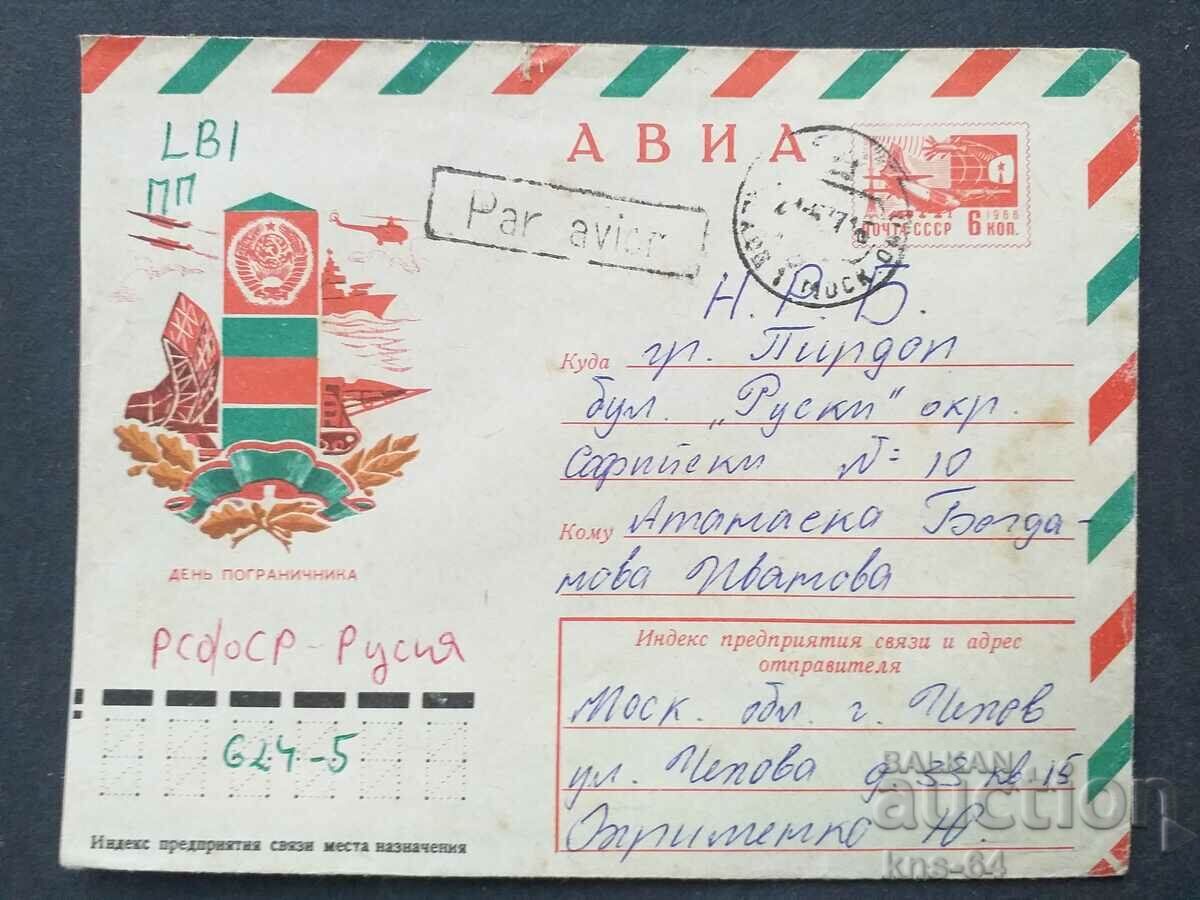 АВИА
LBI
ПП
Par avion
1966
ПОЧТА СССР 6 КОП.
Н. Р. Б.
Куда гр. Пирдоп
бул. „Руски“ окр.
Софийски № 10
Кому Атанаска Богда-
нова Иванова
ДЕНЬ ПОГРАНИЧНИКА
РСФСР - Русия
Индекс предприятия связи и адрес
отправителя
Моск. обл. г. Чехов
ул. Чехова д. 33 кв. 15
Охрименко Ю.
624-5
Индекс предприятия связи места назначения
BALKAN
auction
kns-64